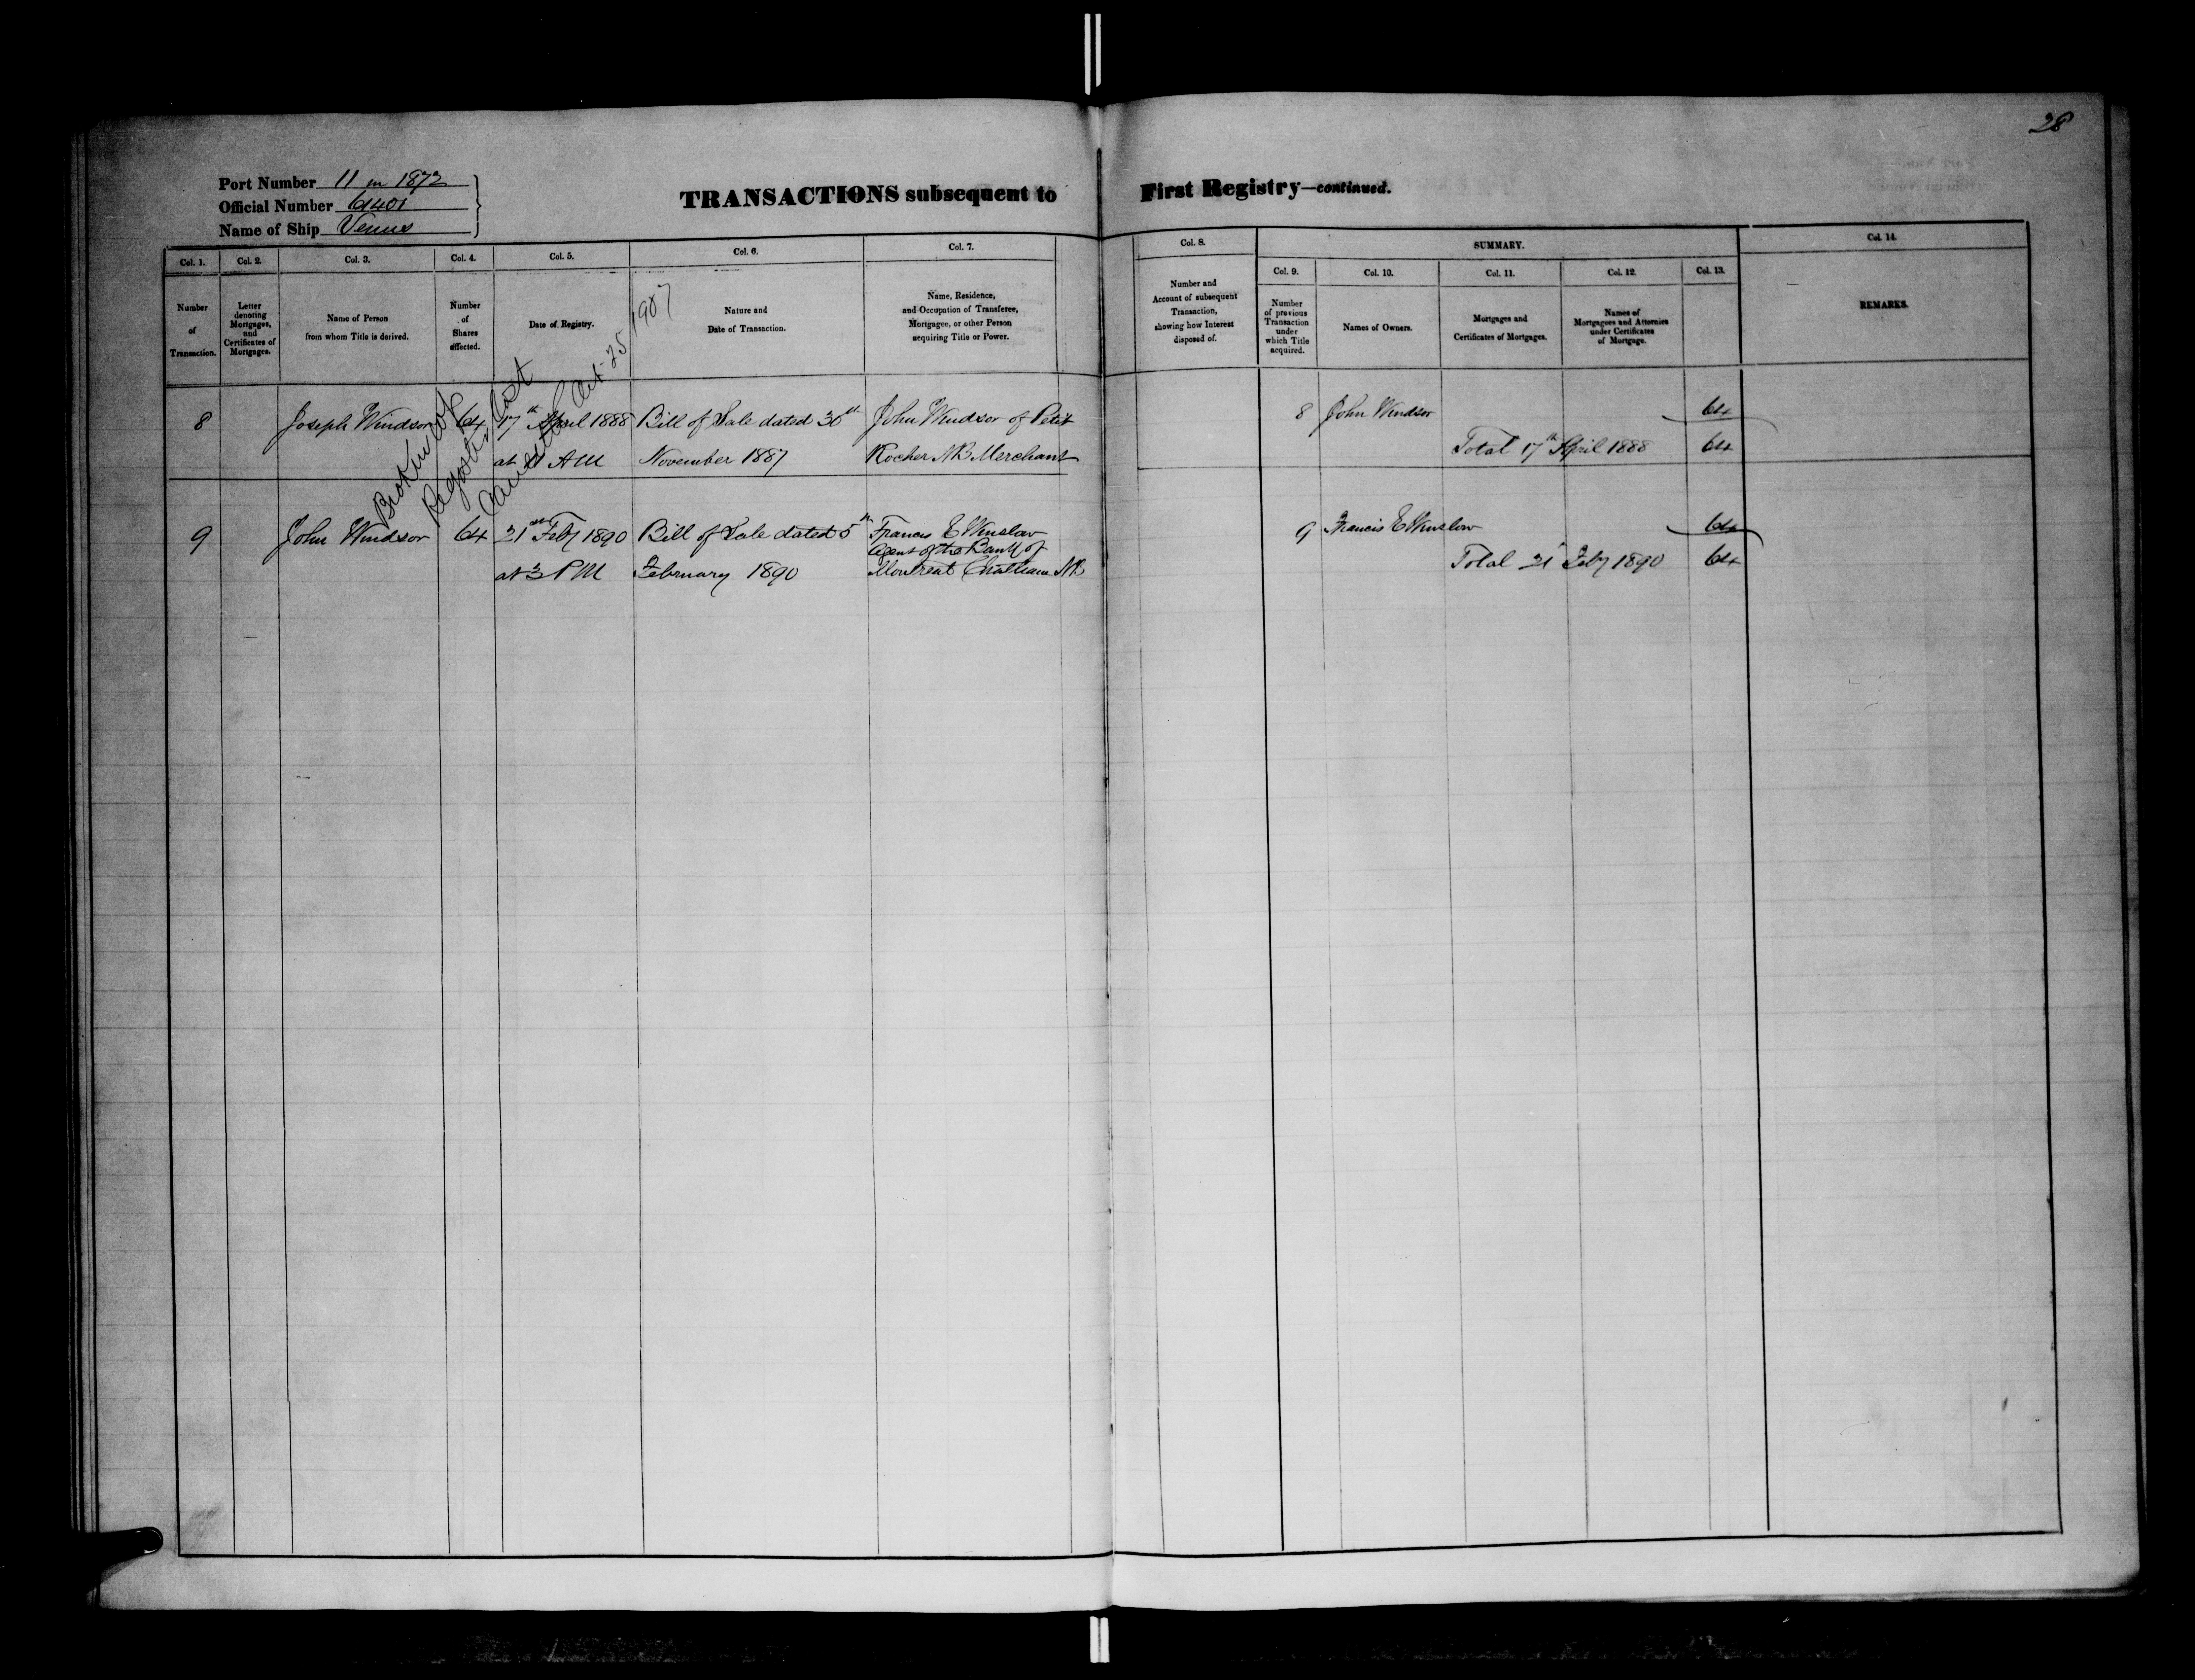 28
Port Number 11 in 1872
Official Number 61401
Name of Ship Venus
TRANSACTIONS subsequent to First Registry—continued.
Col. 1. Col. 2. Col. 3. Col. 4. Col. 5. Col. 6. Col. 7. Col. 8. SUMMARY. Col. 14.
Col. 9. Col. 10. Col. 11. Col. 12. Col. 13.
Number
of
Transaction.
Letter
denoting
Mortgages,
and
Certificates of
Mortgages.
Name of Person
from whom Title is derived.
Number
of
Shares
affected.
Date of Registry.
Nature and
Date of Transaction.
Name, Residence,
and Occupation of Transferee,
Mortgagee, or other Person
acquiring Title or Power.
Number and
Account of subsequent
Transaction,
showing how Interest
disposed of.
Number
of previous
Transaction
under
which Title
acquired.
Names of Owners.
Mortgages and
Certificates of Mortgages.
Names of
Mortgagees and Attornies
under Certificates
of Mortgage.
REMARKS.
Broken up
Register lost
Cancelled Oct. 25 1907
8 Joseph Windsor 64 17th April 1888 Bill of Sale dated 30th John Windsor of Petit 8 John Windsor 64
at 11 AM November 1887 Rocher NB Merchant Total 17th April 1888 64
9 John Windsor 64 21st Feby 1890 Bill of Sale dated 5th Francis E Winslow 9 Francis E Winslow 64
Agent of the Bank of
at 3 PM February 1890 Montreal Chatham NB Total 21 Feby 1890 64